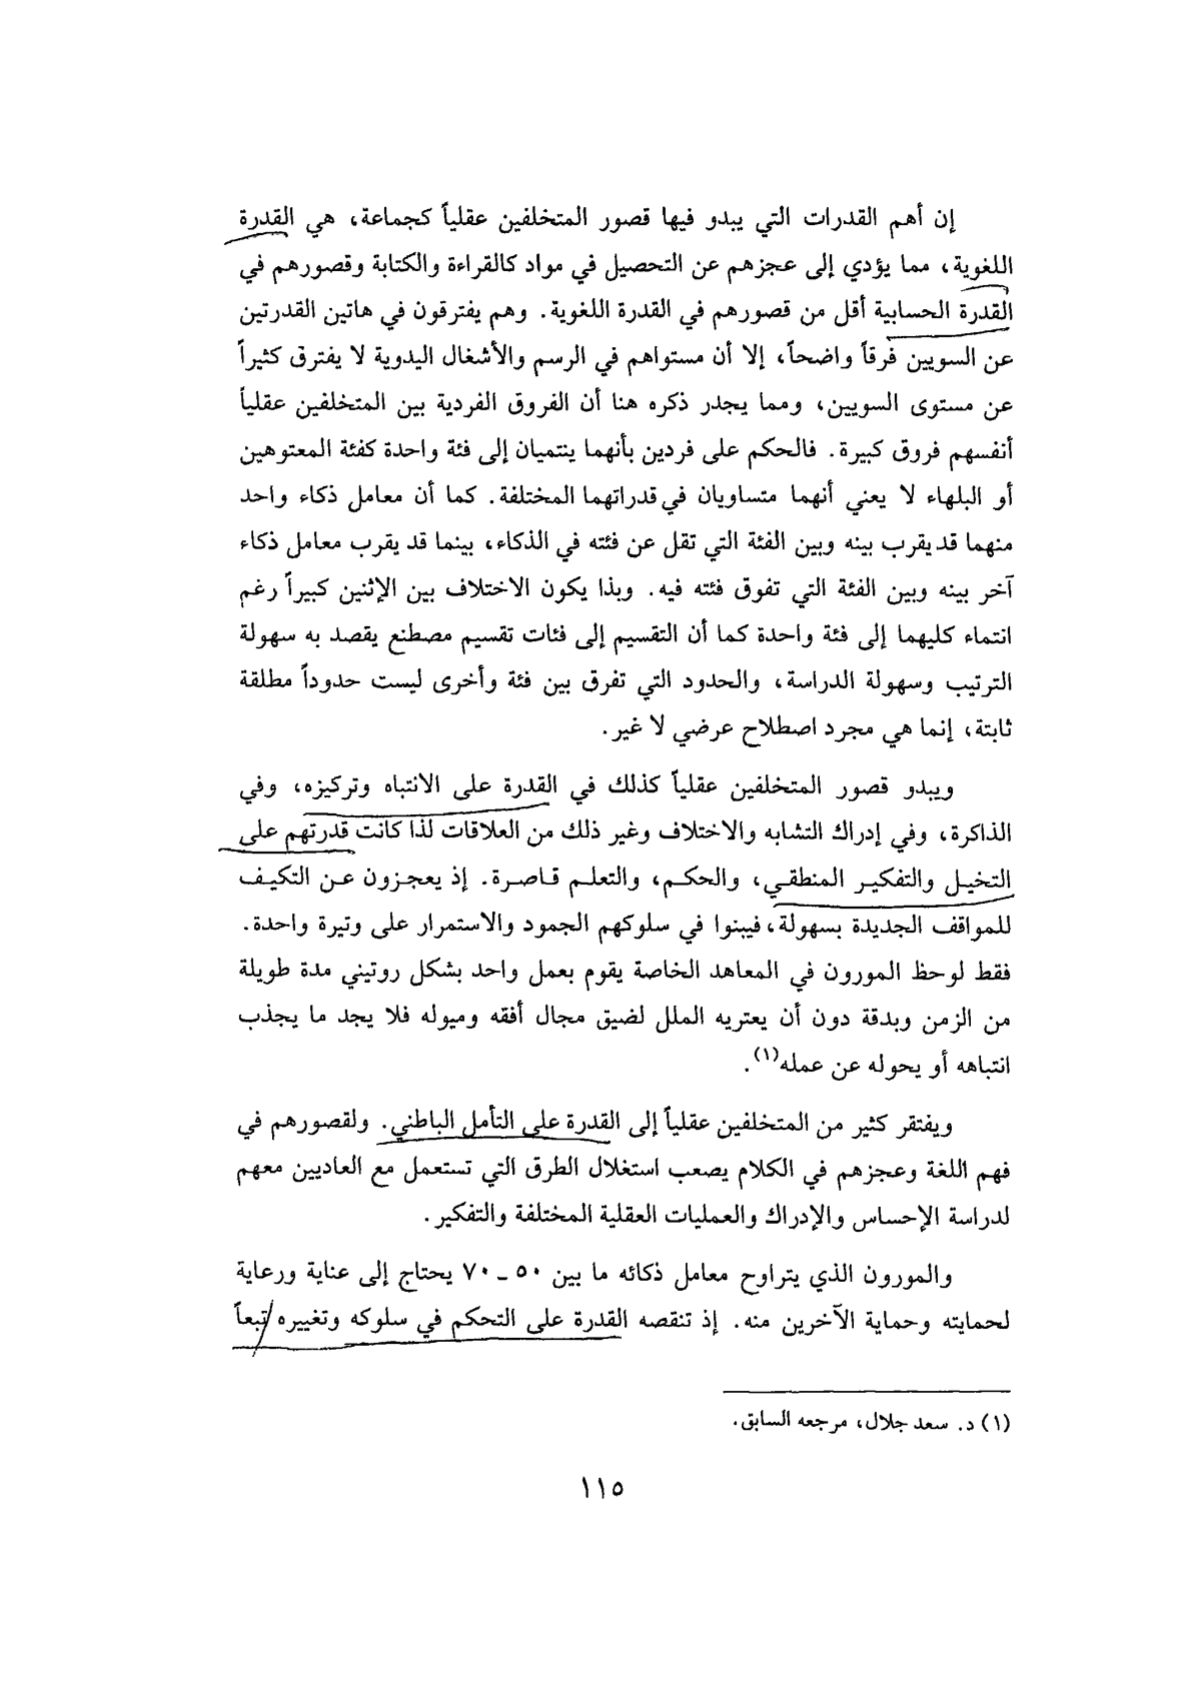 إن أهم القدرات التي يبدو فيها قصور المتخلفين عقلياً كجماعة، هي القدرة
اللغوية، مما يؤدي إلى عجزهم عن التحصيل في مواد كالقراءة والكتابة وقصورهم في
القدرة الحسابية أقل من قصورهم في القدرة اللغوية. وهم يفترقون في هاتين القدرتين
عن السويين فرقاً واضحاً، إلا أن مستواهم في الرسم والأشغال اليدوية لا يفترق كثيراً
عن مستوى السويين، ومما يجدر ذكره هنا أن الفروق الفردية بين المتخلفين عقلياً
أنفسهم فروق كبيرة. فالحكم على فردين بأنهما ينتميان إلى فئة واحدة كفئة المعتوهين
أو البلهاء لا يعني أنهما متساويان في قدراتهما المختلفة. كما أن معامل ذكاء واحد
منهما قد يقرب بينه وبين الفئة التي تقل عن فئته في الذكاء، بينما قد يقرب معامل ذكاء
آخر بينه وبين الفئة التي تفوق فئته فيه. وبذا يكون الاختلاف بين الإثنين كبيراً رغم
انتماء كليهما إلى فئة واحدة كما أن التقسيم إلى فئات تقسيم مصطنع يقصد به سهولة
الترتيب وسهولة الدراسة، والحدود التي تفرق بين فئة وأخرى ليست حدوداً مطلقة
ثابتة، إنما هي مجرد اصطلاح عرضي لا غير.
ويبدو قصور المتخلفين عقلياً كذلك في القدرة على الانتباه وتركيزه، وفي
الذاكرة، وفي إدراك التشابه والاختلاف وغير ذلك من العلاقات لذا كانت قدرتهم على
التخيل والتفكير المنطقي، والحكم، والتعلم قاصرة. إذ يعجزون عن التكيف
للمواقف الجديدة بسهولة، فيبنوا في سلوكهم الجمود والاستمرار على وتيرة واحدة.
فقط لوحظ المورون في المعاهد الخاصة يقوم بعمل واحد بشكل روتيني مدة طويلة
من الزمن وبدقة دون أن يعتريه الملل لضيق مجال أفقه وميوله فلا يجد ما يجذب
انتباهه أو يحوله عن عمله(١).
ويفتقر كثير من المتخلفين عقلياً إلى القدرة على التأمل الباطني. ولقصورهم في
فهم اللغة وعجزهم في الكلام يصعب استغلال الطرق التي تستعمل مع العاديين معهم
لدراسة الإحساس والإدراك والعمليات العقلية المختلفة والتفكير.
والمورون الذي يتراوح معامل ذكائه ما بين ٥٠ ـ ٧٠ يحتاج إلى عناية ورعاية
لحمايته وحماية الآخرين منه. إذ تنقصه القدرة على التحكم في سلوكه وتغييره تبعاً
(١) د. سعد جلال، مرجعه السابق.
١١٥